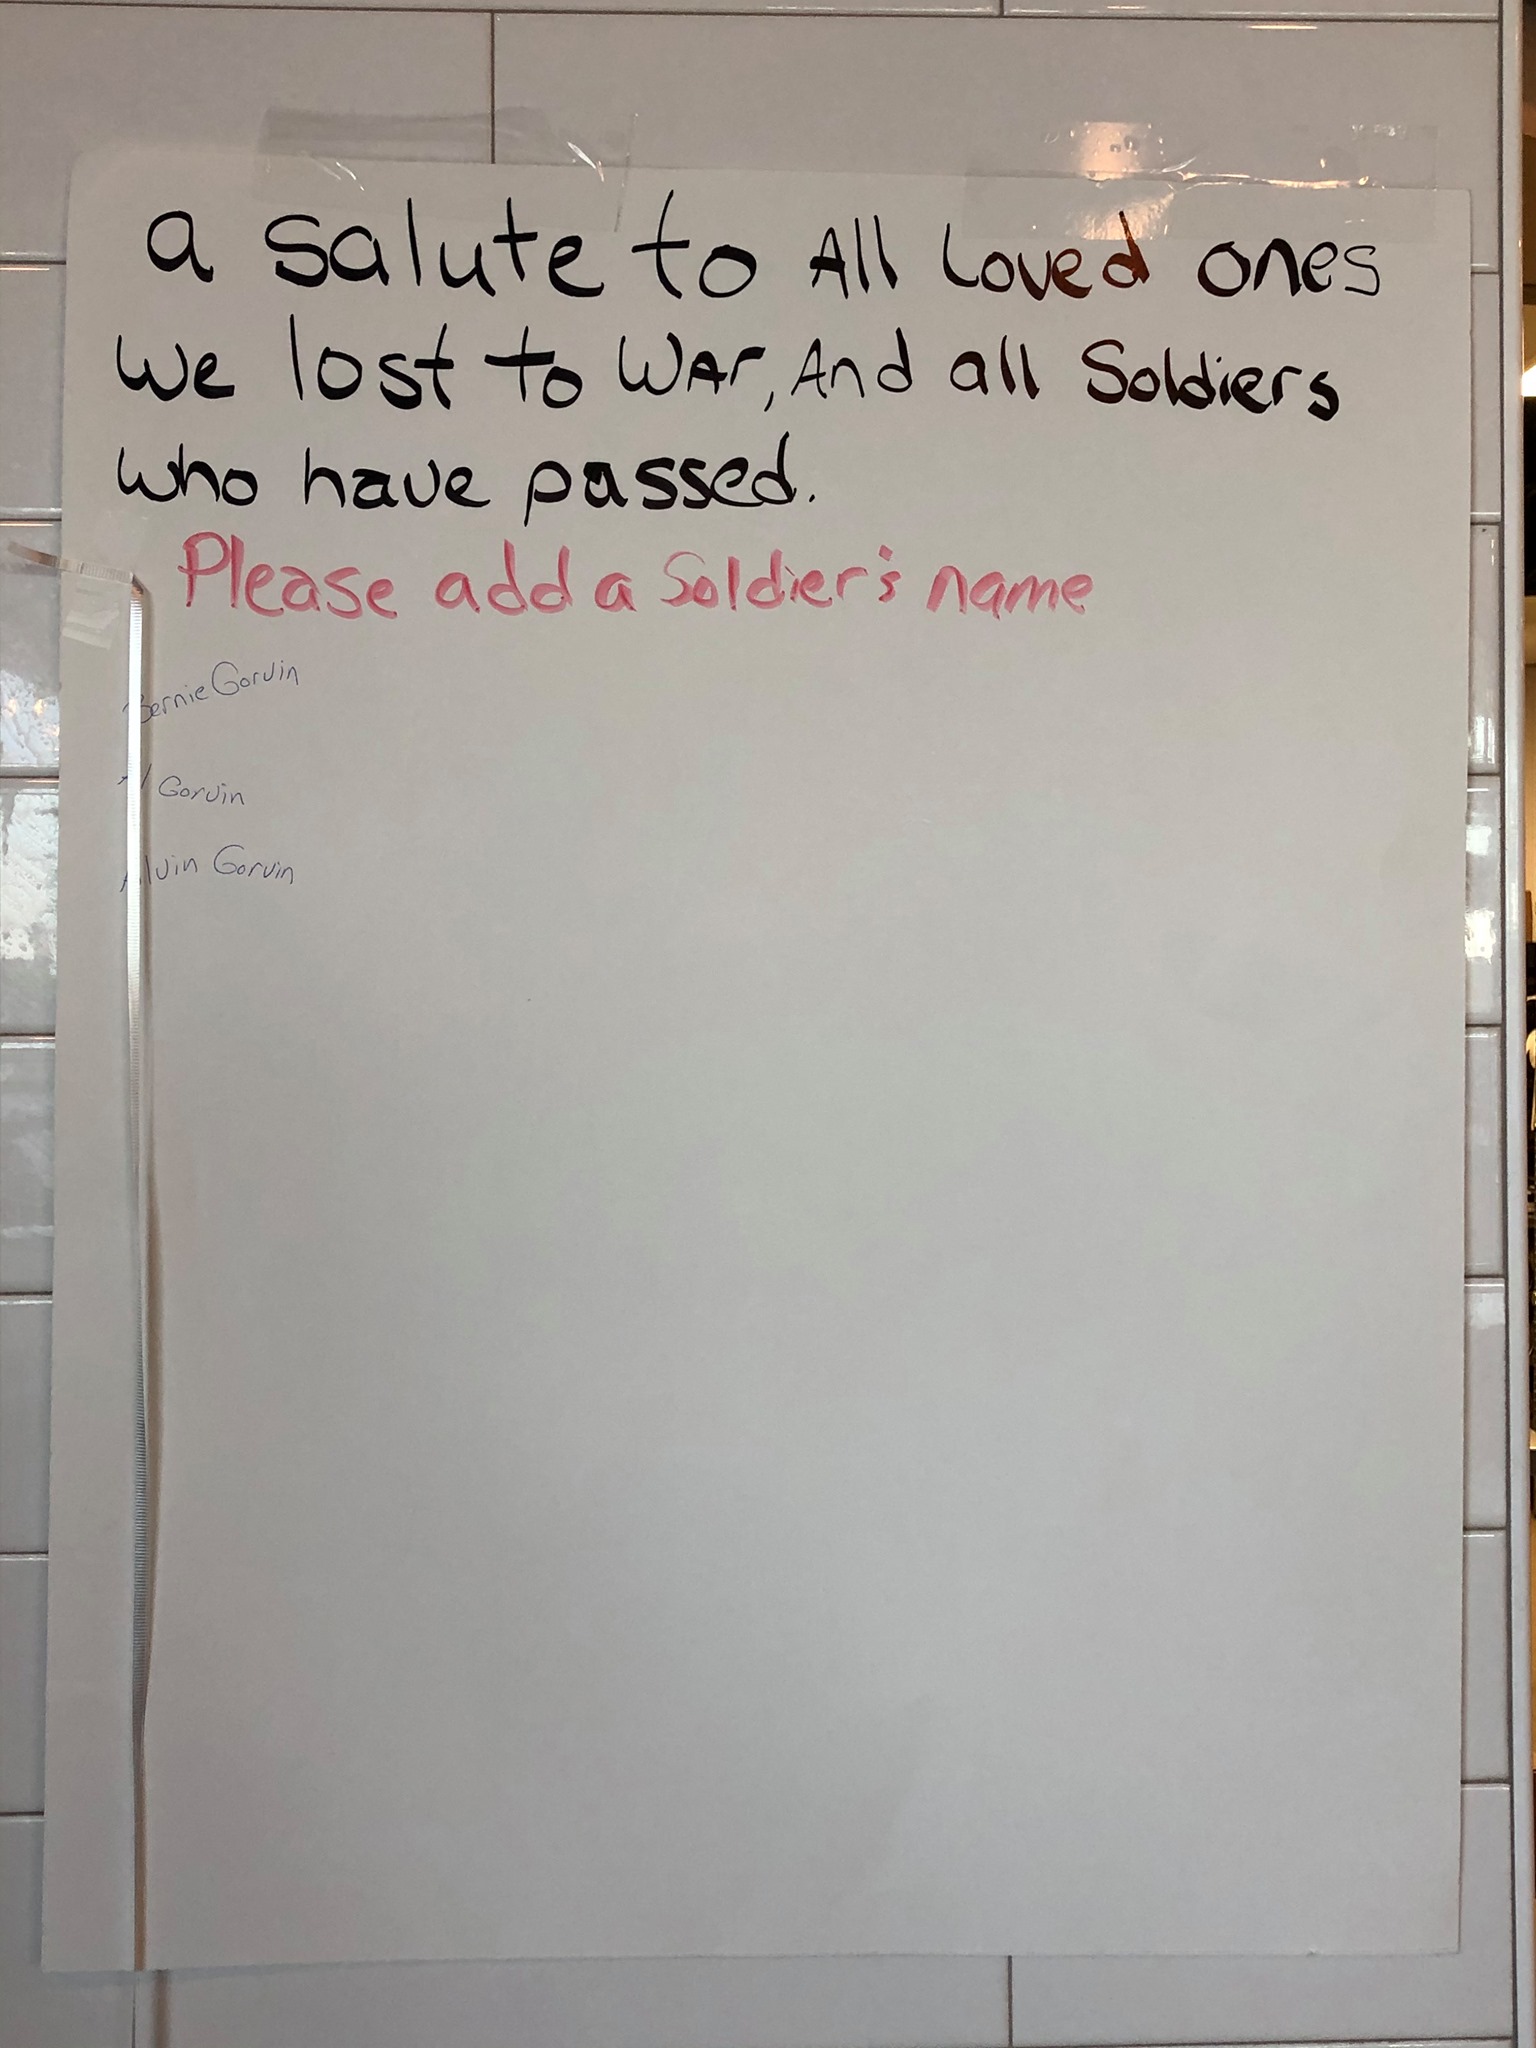 a salute to All Loved ones
we lost to WAr, And all Soldiers
who have passed.
Please add a Soldier's name
Bernie Gorvin
Al Gorvin
Alvin Gorvin